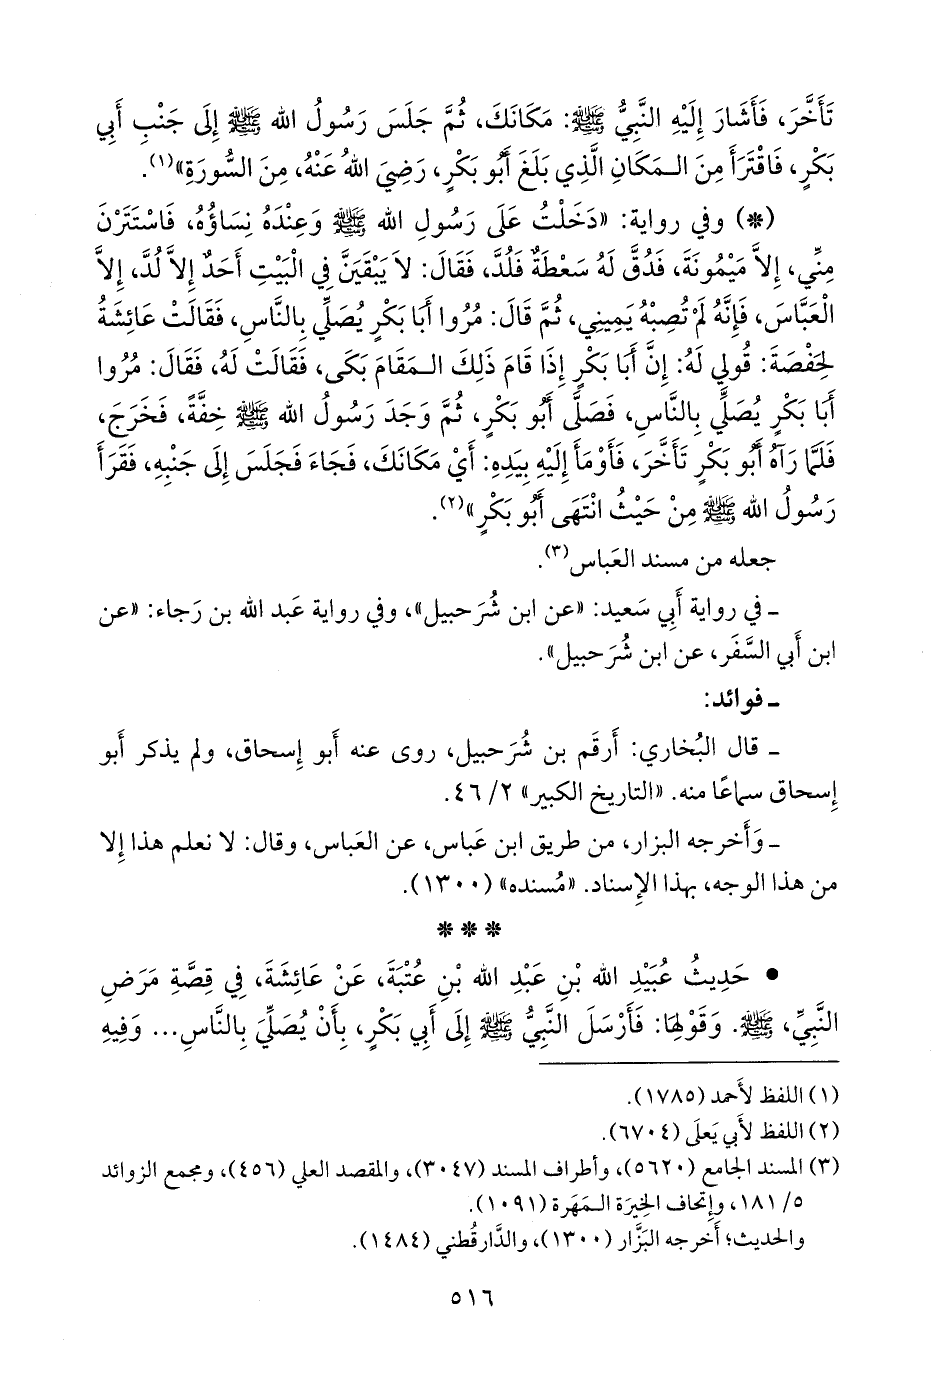 تَأَخَّرَ، فَأَشَارَ إِلَيْهِ النَّبِيُّ ﷺ: مَكَانَكَ، ثُمَّ جَلَسَ رَسُولُ الله ﷺ إِلَى جَنْبِ أَبِي
بَكْرٍ، فَاقْتَرَأَ مِنَ الـمَكَانِ الَّذِي بَلَغَ أَبُو بَكْرٍ، رَضِيَ اللهُ عَنْهُ، مِنَ السُّورَةِ»(١).
(*) وفي رواية: «دَخَلْتُ عَلَى رَسُولِ الله ﷺ وَعِنْدَهُ نِسَاؤُهُ، فَاسْتَتَرْنَ
مِنِّي، إِلاَّ مَيْمُونَةَ، فَدُقَّ لَهُ سَعْطَةٌ فَلُدَّ، فَقَالَ: لاَ يَبْقَيَنَّ فِي الْبَيْتِ أَحَدٌ إِلاَّ لُدَّ، إِلاَّ
الْعَبَّاسَ، فَإِنَّهُ لَمْ تُصِبْهُ يَمِينِي، ثُمَّ قَالَ: مُرُوا أَبَا بَكْرٍ يُصَلِّي بِالنَّاسِ، فَقَالَتْ عَائِشَةُ
لِحَفْصَةَ: قُولِي لَهُ: إِنَّ أَبَا بَكْرٍ إِذَا قَامَ ذَلِكَ الـمَقَامَ بَكَى، فَقَالَتْ لَهُ، فَقَالَ: مُرُوا
أَبَا بَكْرٍ يُصَلِّي بِالنَّاسِ، فَصَلَّى أَبُو بَكْرٍ، ثُمَّ وَجَدَ رَسُولُ الله ﷺ خِفَّةً، فَخَرَجَ،
فَلَمَّا رَآهُ أَبُو بَكْرٍ تَأَخَّرَ، فَأَوْمَأَ إِلَيْهِ بِيَدِهِ: أَيْ مَكَانَكَ، فَجَاءَ فَجَلَسَ إِلَى جَنْبِهِ، فَقَرَأَ
رَسُولُ الله ﷺ مِنْ حَيْثُ انْتَهَى أَبُو بَكْرٍ»(٢).
جعله من مسند العَباس(٣).
ـ في رواية أَبي سَعيد: «عن ابن شُرَحبيل»، وفي رواية عَبد الله بن رَجاء: «عن
ابن أَبي السَّفَر، عن ابن شُرَحبيل».
ـ فوائد:
ـ قال البُخاري: أَرقَم بن شُرَحبيل، روى عنه أَبو إِسحاق، ولم يذكر أَبو
إِسحاق سماعًا منه. «التاريخ الكبير» ٢/ ٤٦.
ـ وَأَخرجه البزار، من طريق ابن عَباس، عن العَباس، وقال: لا نعلم هذا إِلا
من هذا الوجه، بهذا الإِسناد. «مُسنده» (١٣٠٠).
* * *
• حَدِيثُ عُبَيْدِ الله بْنِ عَبْدِ الله بْنِ عُتْبَةَ، عَنْ عَائِشَةَ، فِي قِصَّةِ مَرَضِ
النَّبِيِّ، ﷺ. وَقَوْلِهَا: فَأَرْسَلَ النَّبِيُّ ﷺ إِلَى أَبِي بَكْرٍ، بِأَنْ يُصَلِّيَ بِالنَّاسِ... وَفِيهِ
(١) اللفظ لأَحمد (١٧٨٥).
(٢) اللفظ لأَبي يَعلَى (٦٧٠٤).
(٣) المسند الجامع (٥٦٢٠)، وأطراف المسند (٣٠٤٧)، والمقصد العلي (٤٥٦)، ومجمع الزوائد
٥/ ١٨١، وإتحاف الخِيرَة الـمَهَرة (١٠٩١).
والحديث؛ أَخرجه البَزَّار (١٣٠٠)، والدَّارقُطني (١٤٨٤).
٥١٦